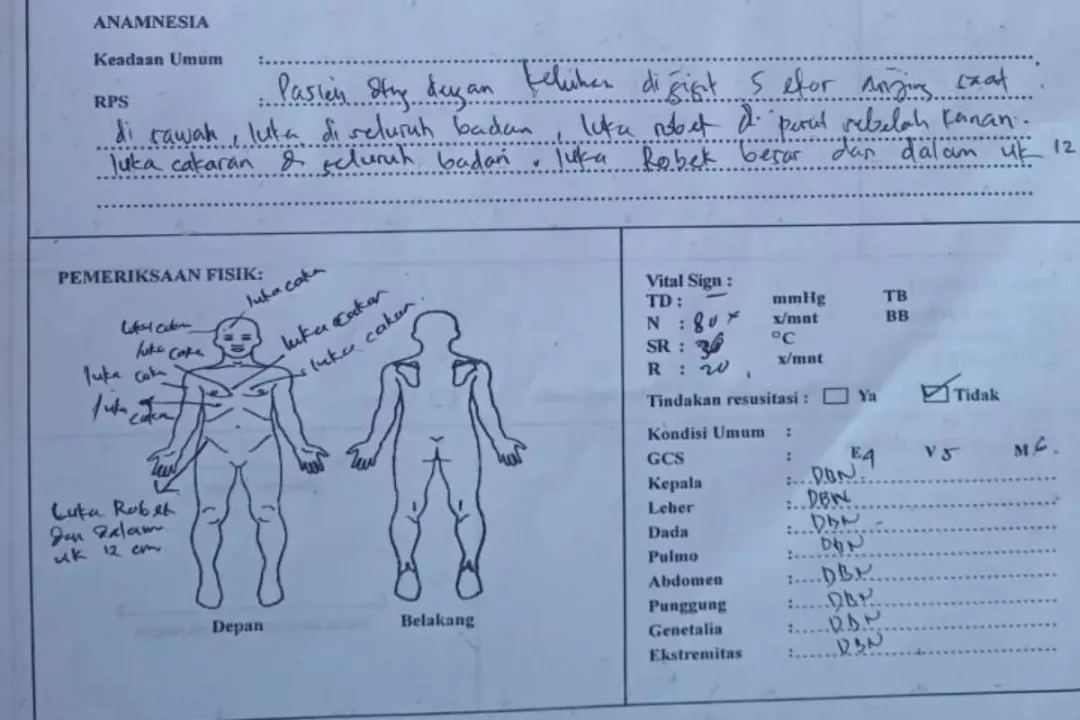 ANAMNESIA
Keadaan Umum :
RPS : Pasien dtng dengan keluhan digigit 5 ekor Anjing saat
di sawah, luka di seluruh badan, luka robek di perut sebelah kanan.
luka cakaran di seluruh badan. luka Robek besar dan dalam uk 12
PEMERIKSAAN FISIK:
luka cakar
luka cakar
luka cakar
luka cakar
luka cakar
luka cakar
luka cakar
Luka Robek
dan dalam
uk 12 cm
Depan
Belakang
Vital Sign :
TD : – mmHg TB
N : 80 x x/mnt BB
SR : 36 °C
R : 20 x/mnt
Tindakan resusitasi : Ya Tidak
Kondisi Umum :
GCS : E4 V5 M6.
Kepala : DBN
Leher : DBN
Dada : DBN
Pulmo : DBN
Abdomen : DBN
Punggung : DBN
Genetalia : DBN
Ekstremitas : DBN